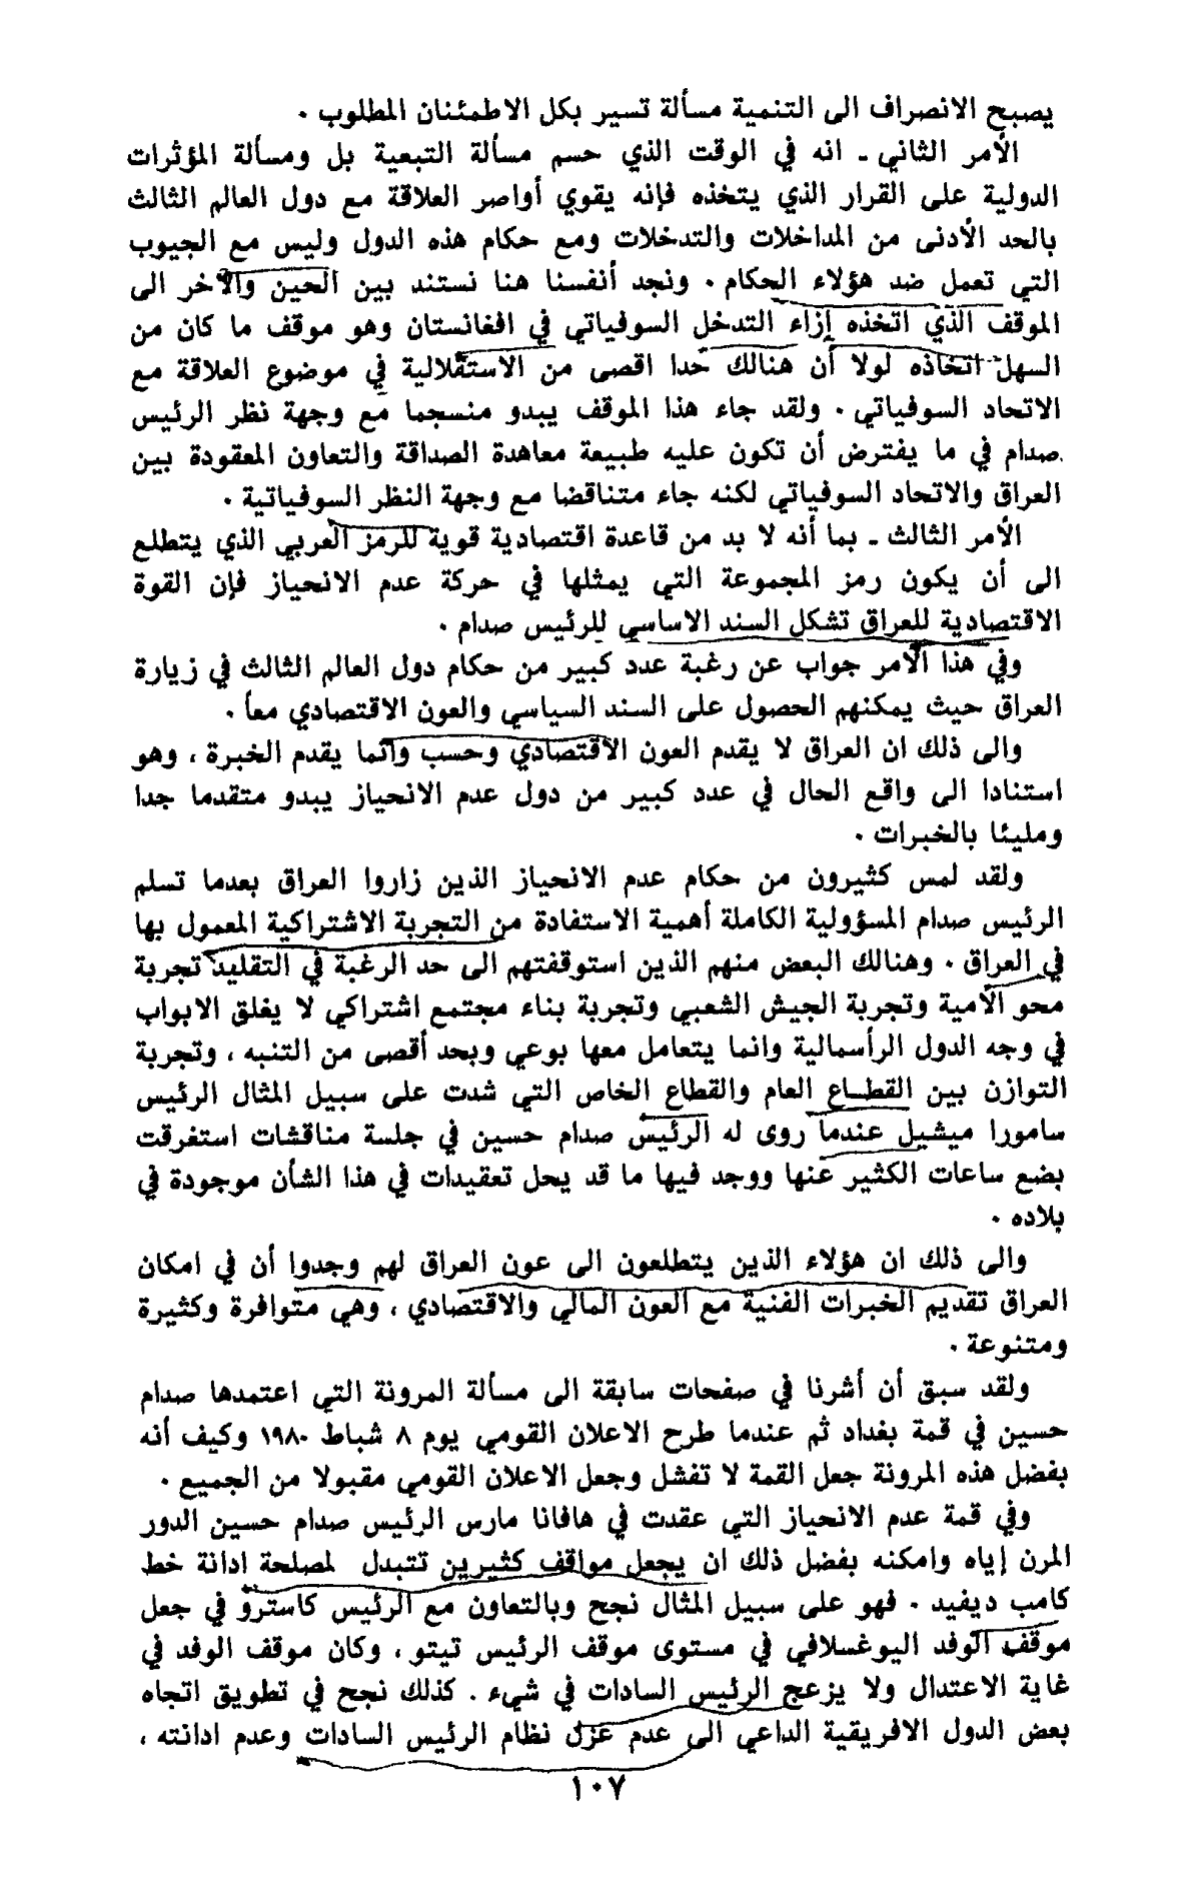 يصبح الانصراف الى التنمية مسألة تسير بكل الاطمئنان المطلوب .
الأمر الثاني ـ انه في الوقت الذي حسم مسألة التبعية بل ومسألة المؤثرات
الدولية على القرار الذي يتخذه فإنه يقوي أواصر العلاقة مع دول العالم الثالث
بالحد الأدنى من المداخلات والتدخلات ومع حكام هذه الدول وليس مع الجيوب
التي تعمل ضد هؤلاء الحكام . ونجد أنفسنا هنا نستند بين الحين والآخر الى
الموقف الذي اتخذه إزاء التدخل السوفياتي في افغانستان وهو موقف ما كان من
السهل اتخاذه لولا أن هنالك حدا اقصى من الاستقلالية في موضوع العلاقة مع
الاتحاد السوفياتي . ولقد جاء هذا الموقف يبدو منسجما مع وجهة نظر الرئيس
صدام في ما يفترض أن تكون عليه طبيعة معاهدة الصداقة والتعاون المعقودة بين
العراق والاتحاد السوفياتي لكنه جاء متناقضا مع وجهة النظر السوفياتية .
الأمر الثالث ـ بما أنه لا بد من قاعدة اقتصادية قوية للرمز العربي الذي يتطلع
الى أن يكون رمز المجموعة التي يمثلها في حركة عدم الانحياز فإن القوة
الاقتصادية للعراق تشكل السند الاساسي للرئيس صدام .
وفي هذا الأمر جواب عن رغبة عدد كبير من حكام دول العالم الثالث في زيارة
العراق حيث يمكنهم الحصول على السند السياسي والعون الاقتصادي معاً .
والى ذلك ان العراق لا يقدم العون الاقتصادي وحسب وانما يقدم الخبرة ، وهو
استنادا الى واقع الحال في عدد كبير من دول عدم الانحياز يبدو متقدما جدا
ومليئا بالخبرات .
ولقد لمس كثيرون من حكام عدم الانحياز الذين زاروا العراق بعدما تسلم
الرئيس صدام المسؤولية الكاملة أهمية الاستفادة من التجربة الاشتراكية المعمول بها
في العراق . وهنالك البعض منهم الذين استوقفتهم الى حد الرغبة في التقليد تجربة
محو الأمية وتجربة الجيش الشعبي وتجربة بناء مجتمع اشتراكي لا يغلق الابواب
في وجه الدول الرأسمالية وانما يتعامل معها بوعي وبحد أقصى من التنبه ، وتجربة
التوازن بين القطـاع العام والقطاع الخاص التي شدت على سبيل المثال الرئيس
سامورا ميشيل عندما روى له الرئيس صدام حسين في جلسة مناقشات استغرقت
بضع ساعات الكثير عنها ووجد فيها ما قد يحل تعقيدات في هذا الشأن موجودة في
بلاده .
والى ذلك ان هؤلاء الذين يتطلعون الى عون العراق لهم وجدوا أن في امكان
العراق تقديم الخبرات الفنية مع العون المالي والاقتصادي ، وهي متوافرة وكثيرة
ومتنوعة .
ولقد سبق أن أشرنا في صفحات سابقة الى مسألة المرونة التي اعتمدها صدام
حسين في قمة بغداد ثم عندما طرح الاعلان القومي يوم ٨ شباط ١٩٨٠ وكيف أنه
بفضل هذه المرونة جعل القمة لا تفشل وجعل الاعلان القومي مقبولا من الجميع .
وفي قمة عدم الانحياز التي عقدت في هافانا مارس الرئيس صدام حسين الدور
المرن إياه وامكنه بفضل ذلك ان يجعل مواقف كثيرين تتبدل لمصلحة ادانة خط
كامب ديفيد . فهو على سبيل المثال نجح وبالتعاون مع الرئيس كاسترو في جعل
موقف الوفد اليوغسلافي في مستوى موقف الرئيس تيتو ، وكان موقف الوفد في
غاية الاعتدال ولا يزعج الرئيس السادات في شيء . كذلك نجح في تطويق اتجاه
بعض الدول الافريقية الداعي الى عدم عزل نظام الرئيس السادات وعدم ادانته ،
١٠٧